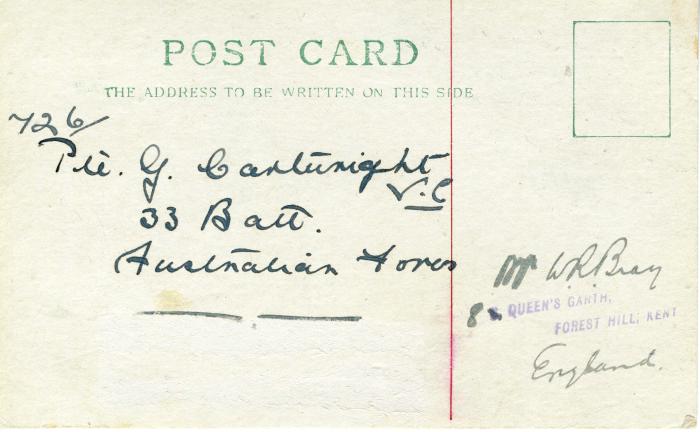 POST CARD
THE ADDRESS TO BE WRITTEN ON THIS SIDE
726/
Pte. G. Cartwright
V.C
33 Batt.
Australian Forces
Mr W.R. Bray
8 QUEEN'S GARTH,
FOREST HILL, KENT
England.